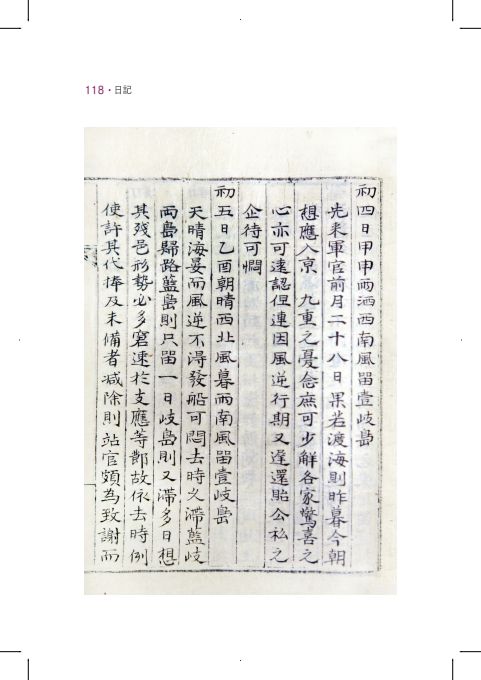 118 · 日記
初四日甲申雨洒西南風留壹岐島
先來軍官前月二十八日果若渡海則昨暮今朝
想應入京 九重之憂念庶可少解各家驚喜之
心亦可遠認但連因風逆行期又遲還貽公私之
企待可悶
初五日乙酉朝晴西北風暮雨南風留壹岐島
天晴海晏而風逆不得發船可悶去時久滯藍岐
兩島歸路藍島則只留一日岐島則又滯多日想
其殘邑形勢必多窘速於支應等節故依去時例
使許其代捧及未備者减除則站官頗為致謝而